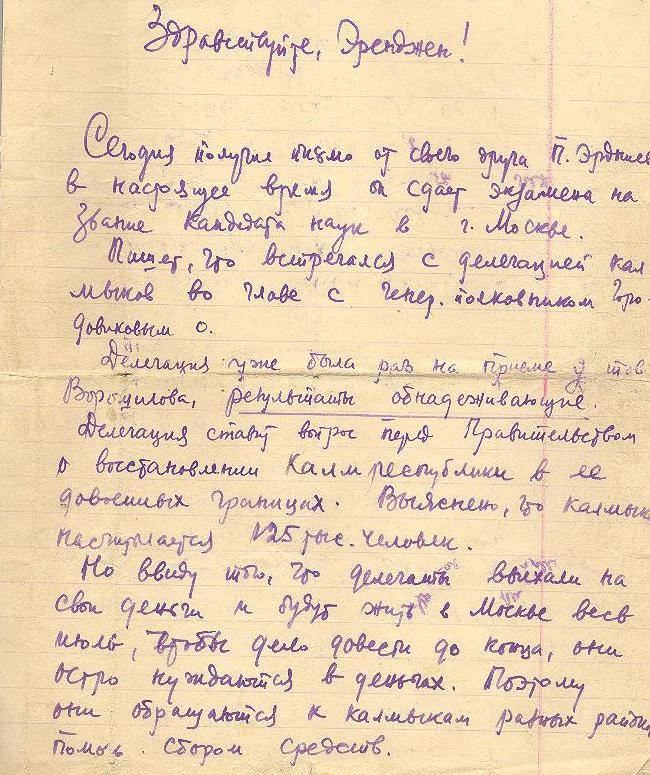 Здравствуйте, Эренджен!
Сегодня получил письмо от своего друга П. Эрдниев
в настоящее время он сдает экзамена на
звание Кандидата наук в г. Москве.
Пишет, что встречался с делегацией кал
мыков во главе с генер. полковником Горо-
довиковым О.
Делегация уже была раз на приеме у тов
Ворошилова, результаты обнадеживающие.
Делегация ставит вопрос перед Правительством
о восстановлении Калм республики в ее
довоенных границах. Выяснено, что калмык
насчитывается 125 тыс. человек.
Но ввиду того, что делегаты выехали на
свои деньги и будут жить в Москве весь
июль, чтобы дело довести до конца, они
остро нуждаются в деньгах. Поэтому
они обращаются к калмыкам разных район
помочь сбором средств.